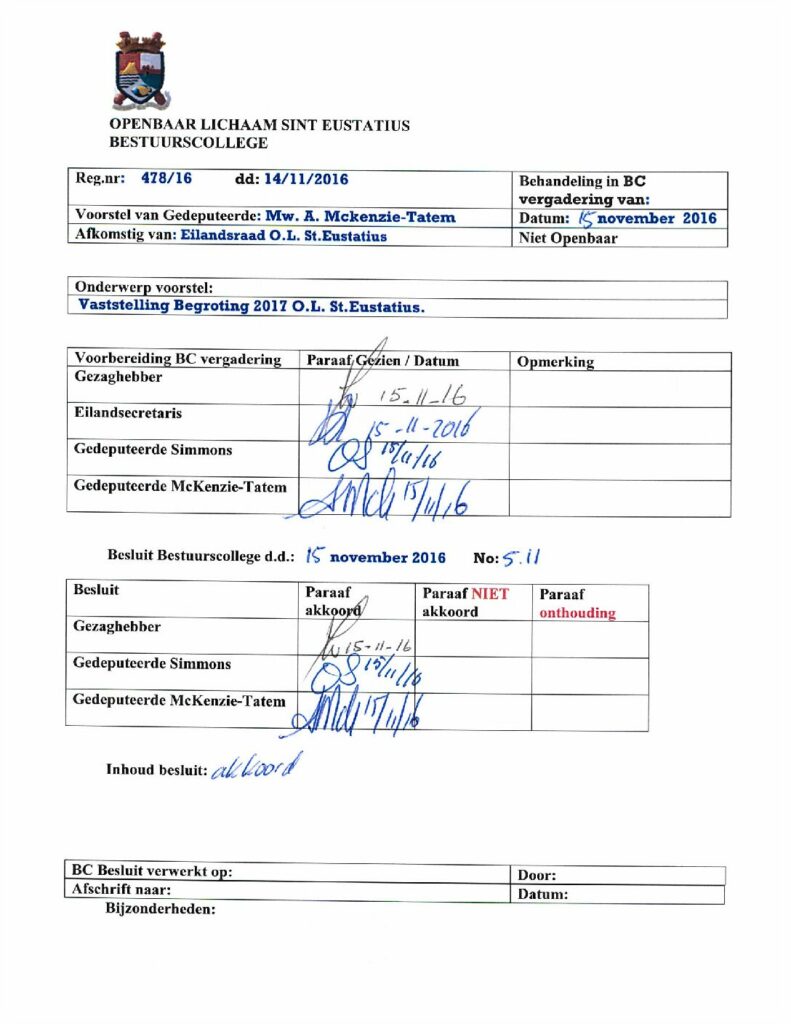 OPENBAAR LICHAAM SINT EUSTATIUS
BESTUURSCOLLEGE
Reg.nr: 478/16 dd: 14/11/2016
Behandeling in BC
vergadering van:
Voorstel van Gedeputeerde: Mw. A. Mckenzie-Tatem
Datum: 15 november 2016
Afkomstig van: Eilandsraad O.L. St.Eustatius
Niet Openbaar
Onderwerp voorstel:
Vaststelling Begroting 2017 O.L. St.Eustatius.
Voorbereiding BC vergadering Paraaf Gezien / Datum Opmerking
Gezaghebber 15-11-16
Eilandsecretaris 15-11-2016
Gedeputeerde Simmons OS 15/11/16
Gedeputeerde McKenzie-Tatem 15/11/16
Besluit Bestuurscollege d.d.: 15 november 2016 No: 5.11
Besluit Paraaf akkoord Paraaf NIET akkoord Paraaf onthouding
Gezaghebber 15-11-16
Gedeputeerde Simmons OS 15/11/16
Gedeputeerde McKenzie-Tatem 15/11/16
Inhoud besluit: akkoord
BC Besluit verwerkt op: Door:
Afschrift naar: Datum:
Bijzonderheden: